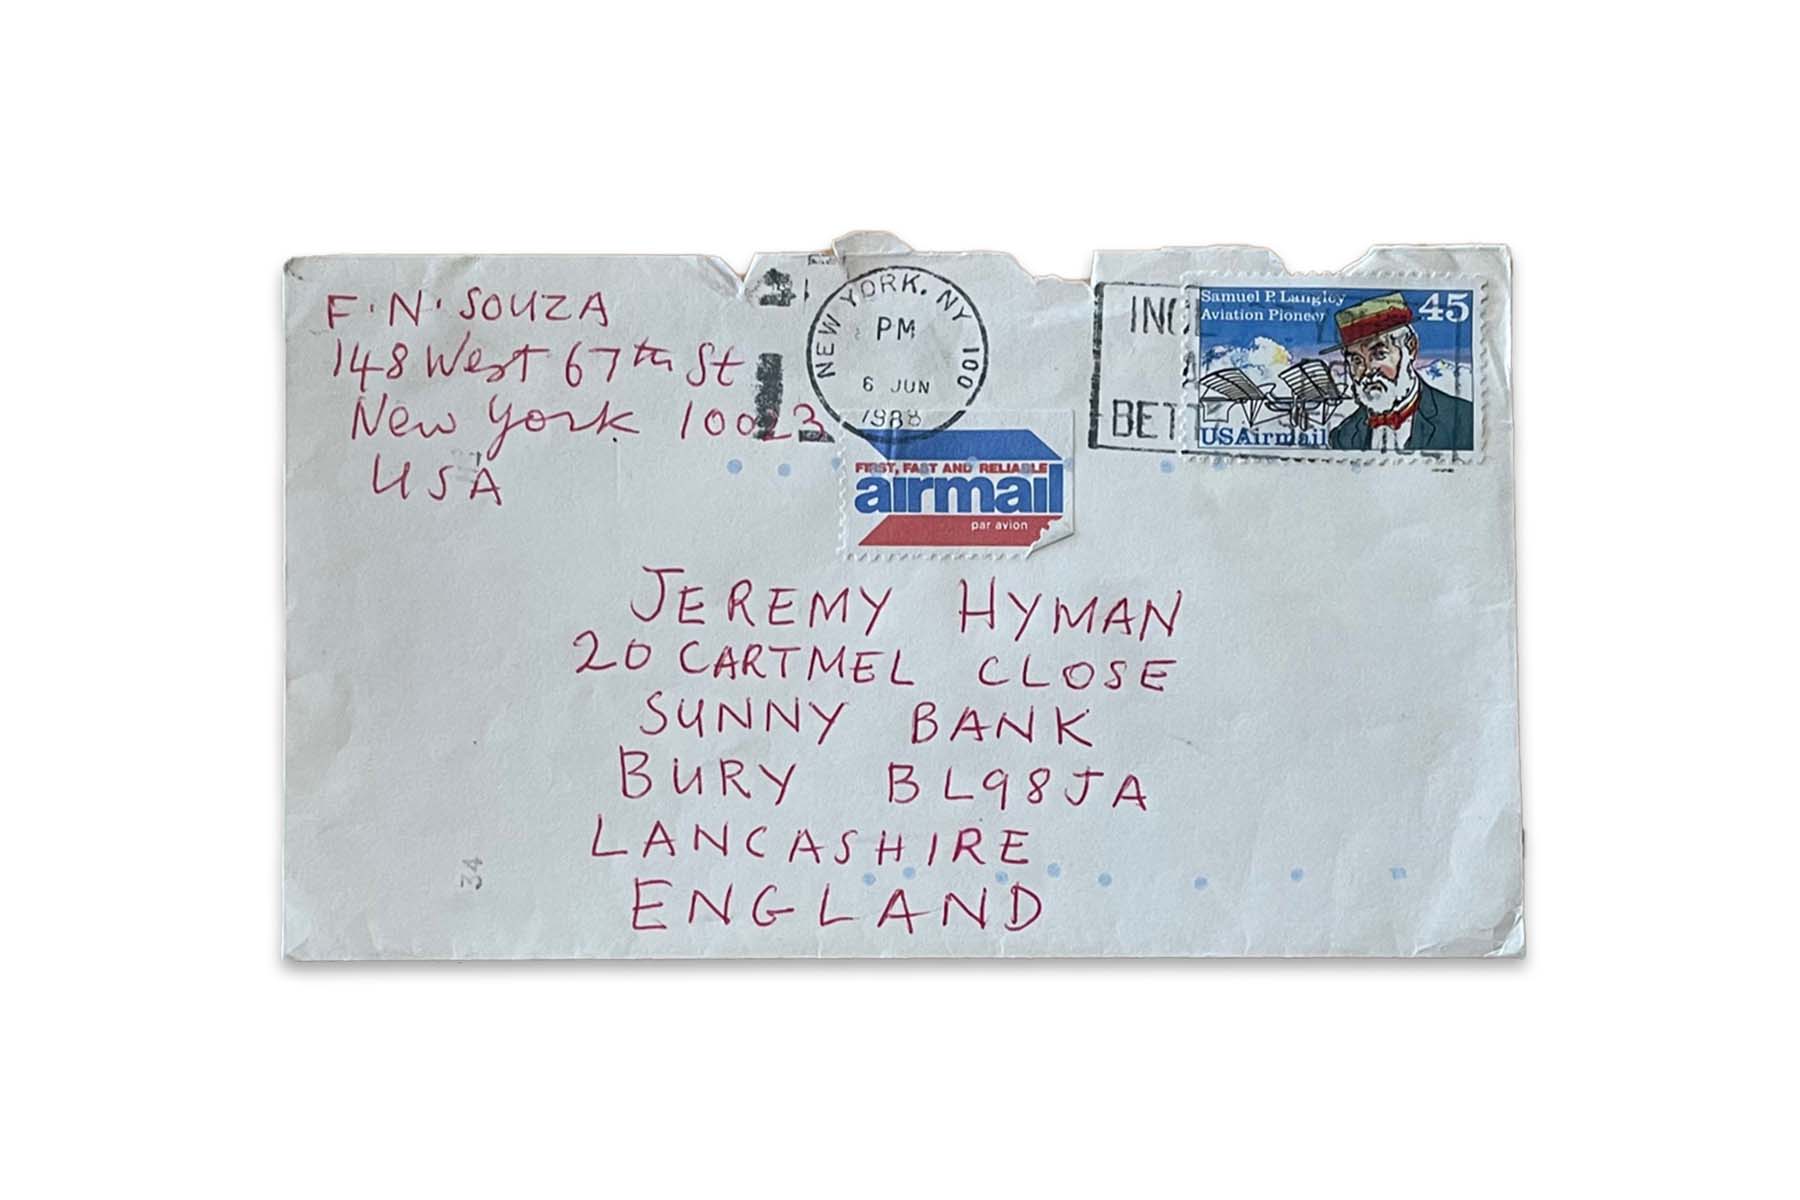 F. N. SOUZA
148 West 67th St
New York 10023
USA
NEW YORK, NY 100
PM
6 JUN
1988
Samuel P. Langley
Aviation Pioneer
45
USAirmail
FIRST, FAST AND RELIABLE
airmail
par avion
JEREMY HYMAN
20 CARTMEL CLOSE
SUNNY BANK
BURY BL98JA
LANCASHIRE
ENGLAND
34